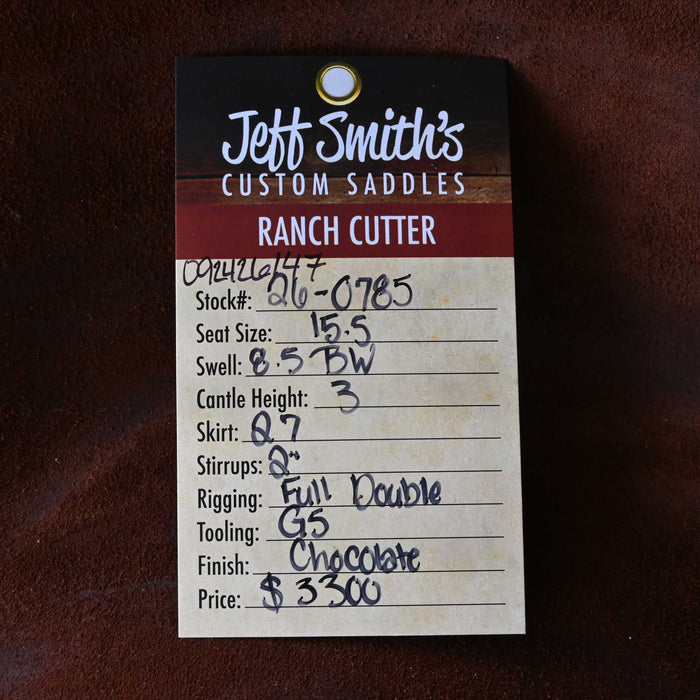 Jeff Smith's
CUSTOM SADDLES
RANCH CUTTER
092426/47
Stock#: 26-0785
Seat Size: 15.5
Swell: 8.5 BW
Cantle Height: 3
Skirt: 27
Stirrups: 2"
Rigging: Full Double
Tooling: G5
Finish: Chocolate
Price: $3300